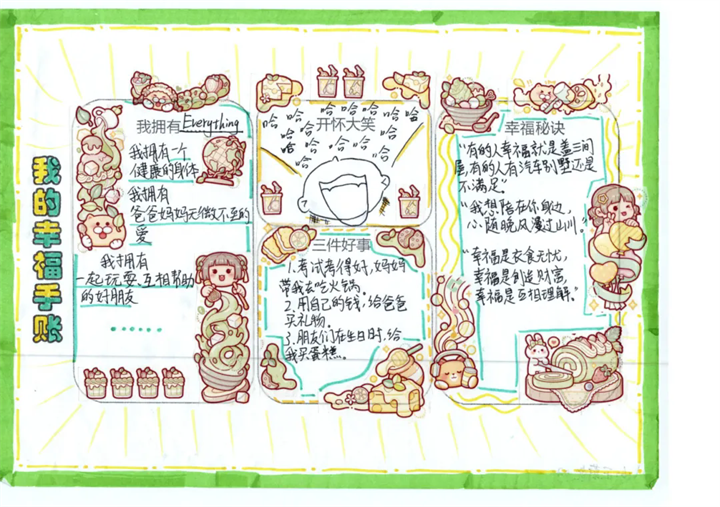 我的幸福手账
我拥有Everything
我拥有一个
健康的身体
我拥有
爸爸妈妈无微不至的
爱
我拥有
一起玩耍、互相帮助
的好朋友
......
哈哈哈哈哈哈哈
哈哈开怀大笑哈哈
哈哈哈哈哈哈
哈哈哈哈
三件好事
1.考试考得好,妈妈
带我去吃火锅。
2.用自己的钱,给爸爸
买礼物。
3.朋友们在生日时,给
我买蛋糕。
幸福秘诀
“有的人幸福就是盖三间
屋,有的人有汽车别墅还是
不满足”
“我想陪在你身边,
心随晚风漫过山川。”
“幸福是衣食无忧,
幸福是创造财富,
幸福是互相理解。”